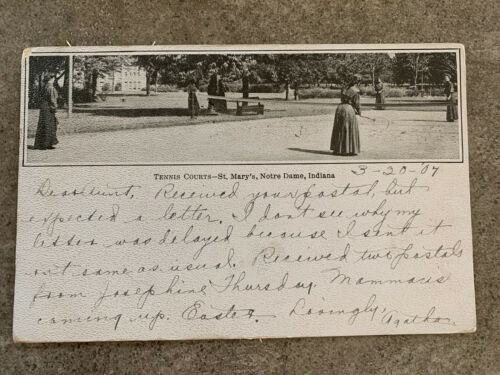 Tennis Courts—St. Mary's, Notre Dame, Indiana
3-20-07
Dear Aunt, Received your postal, but
expected a letter. I dont see why my
letter was delayed because I sent it
out same as usual. Received two postals
from Josephine Thursday. Mamma is
coming up. Easter. Lovingly,
Agatha